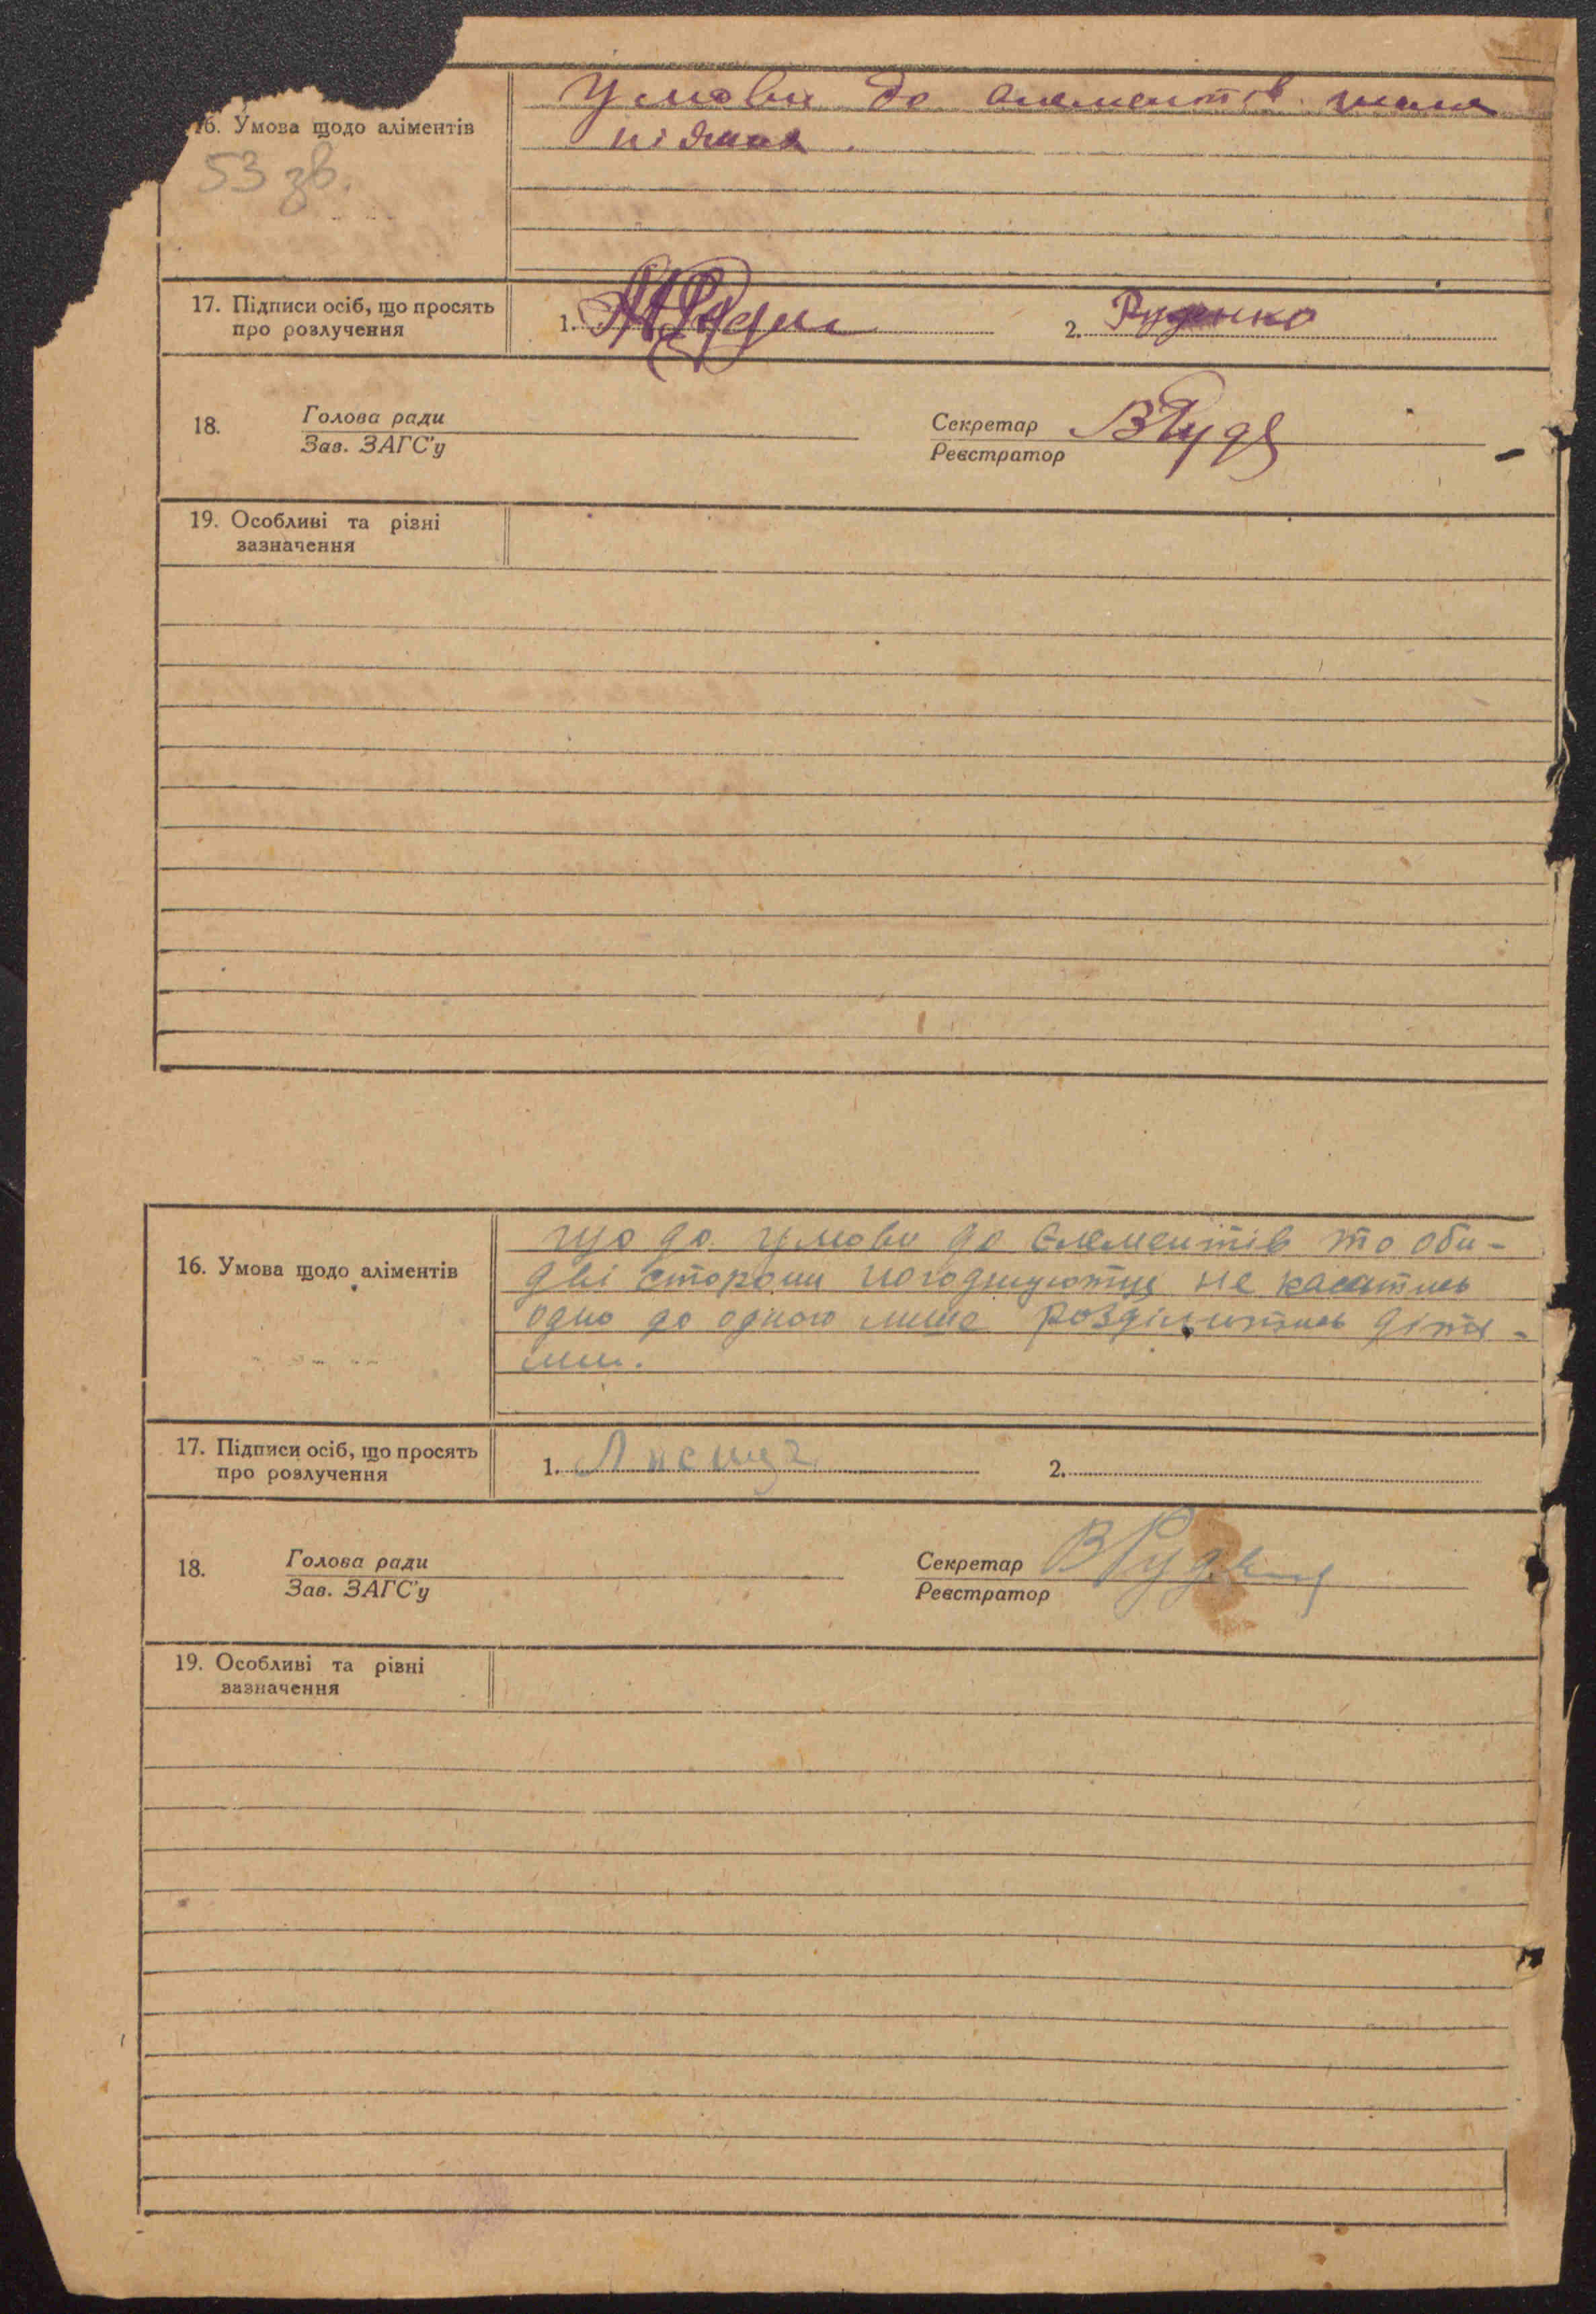 16. Умова щодо аліментів
Умови до алементів
53 зв.
17. Підписи осіб, що просять
про розлучення
1.
2. Руденко
18.
Голова ради
Зав. ЗАГС'у
Секретар
Реєстратор
19. Особливі та різні
зазначення
16. Умова щодо аліментів
що до умови до Єлементів то оби-
дві сторони погоджуютця не касатись
одно до одного лише розділитись дітя-
ми.
17. Підписи осіб, що просять
про розлучення
1.
2.
18.
Голова ради
Зав. ЗАГС'у
Секретар
Реєстратор
19. Особливі та різні
зазначення